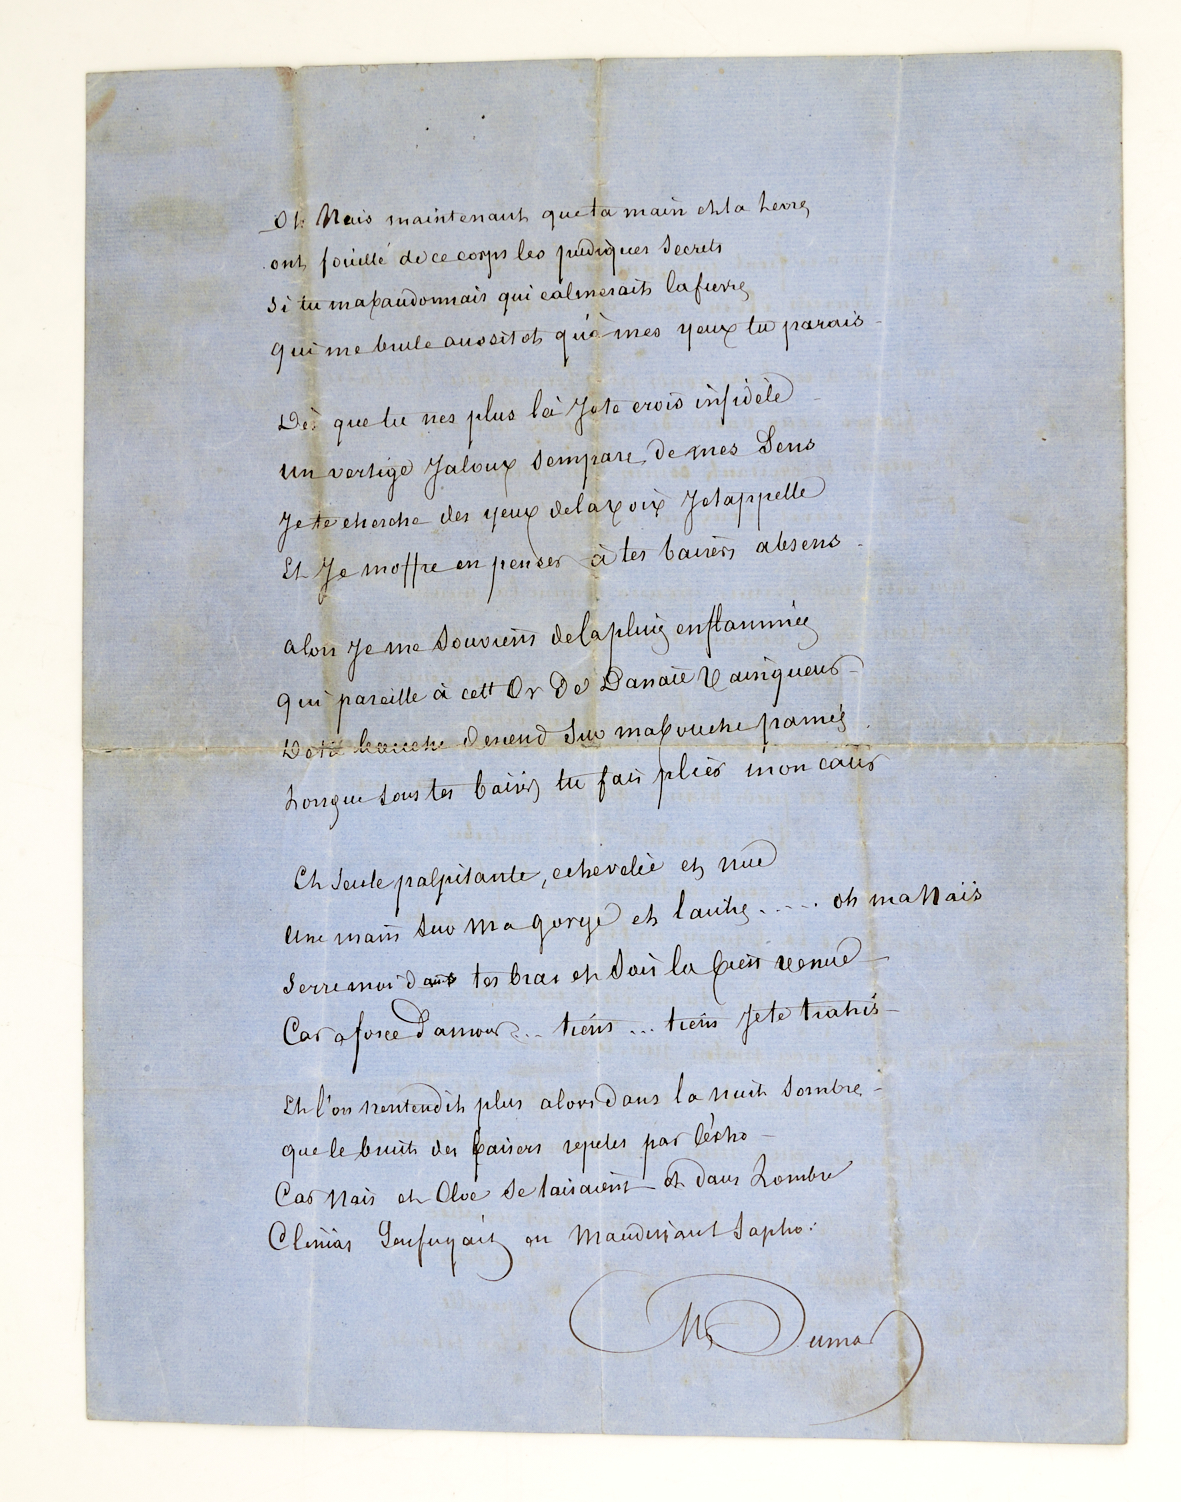 Oh Nais maintenant que ta main et ta levre
ont fouillé de ce corps les pudiques secrets
Si tu mabandonnais qui calmerait la fievre
qui me brule aussitot qu'à mes yeux tu parais
Dès que tu nes plus là Je te crois infidèle
un vertige Jaloux sempare de mes Sens
Je te cherche des yeux de la voix Je tappelle
Et Je moffre en penser à tes baisers absens
alors Je me souviens de la pluie enflammée
qui pareille à cett Or de Danaïe Vainqueur
De ta bouche descend Sur ma bouche pamée
Lorsque sous tes baisers tu fais plier mon cœur
Et seule palpitante, echevelée et nue
Une main sur ma gorge et lautre ..... oh ma Naïs
Serre moi dans tes bras et sois la bien venue
Car a force damour ... tiens ... tiens Je te trahis
Et l'on nentendit plus alors dans la nuit Sombre
que le bruit des baisers repetes par lécho
Car Nais et Cloé se taisaient et dans Lombre
Clinias Senfuyait en Maudissant Sapho.
Dumas